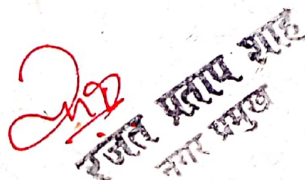 रजत प्रताप शाह
नगर प्रमुख